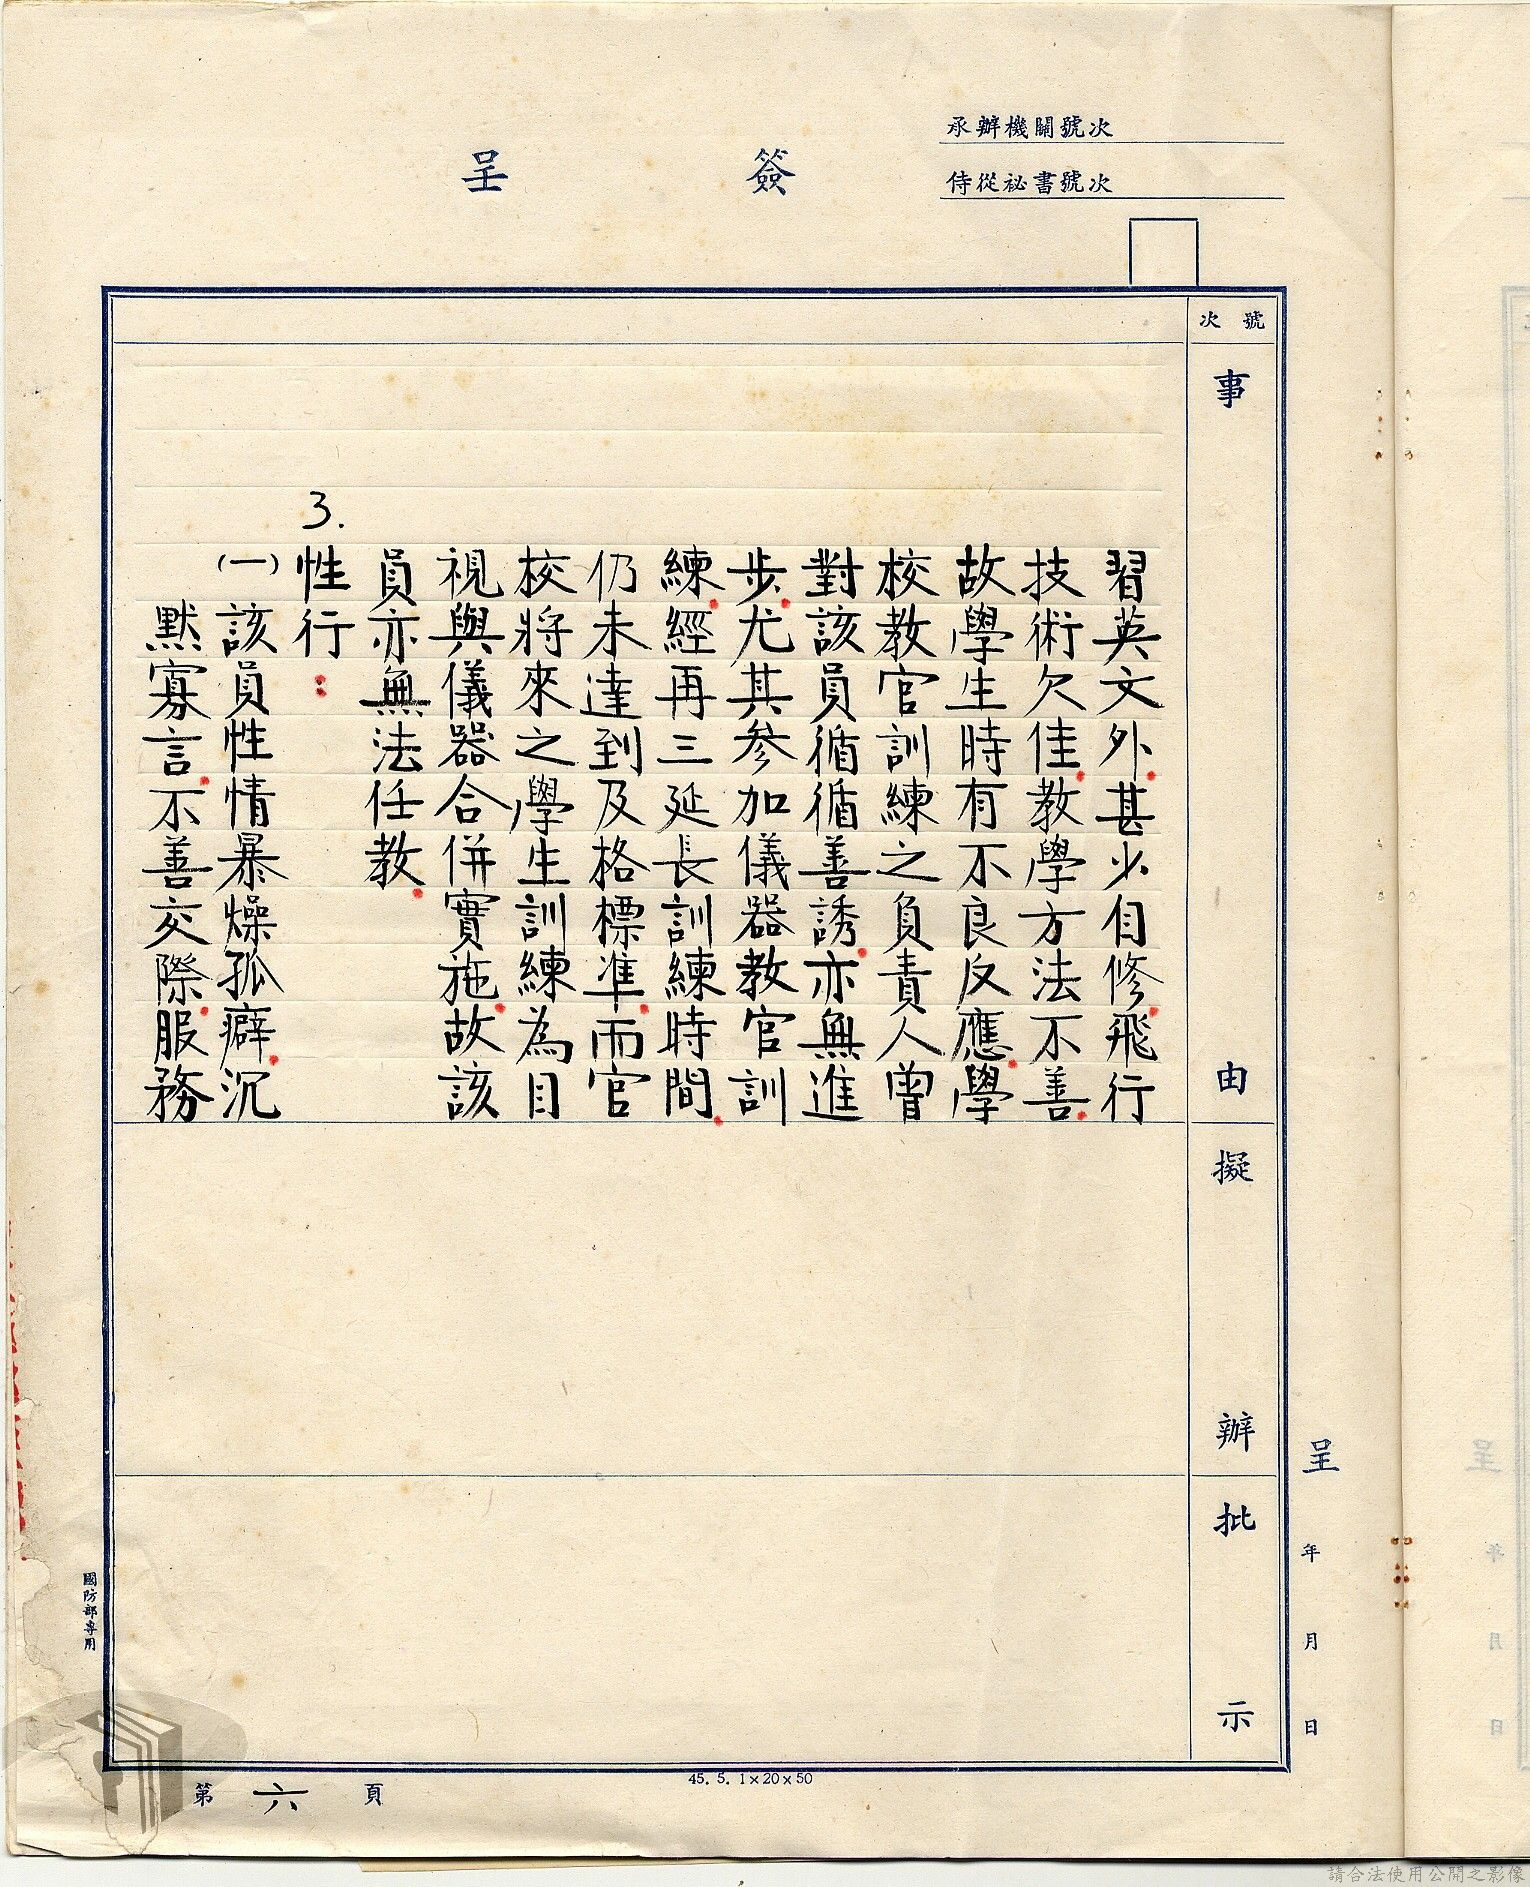 承辦機關號次
侍從祕書號次
簽呈
號次
事由
擬辦
批示
習英文外甚少自修飛行
技術欠佳教學方法不善
故學生時有不良反應學
校教官訓練之負責人曾
對該員循循善誘亦無進
步尤其參加儀器教官訓
練經再三延長訓練時間
仍未達到及格標準而官
校將來之學生訓練為目
視與儀器合併實施故該
員亦無法任教
3.性行：
(一)該員性情暴燥孤癖沉
默寡言不善交際服務
呈 年 月 日
國防部專用
第六頁
45. 5. 1×20×50
請合法使用公開之影像